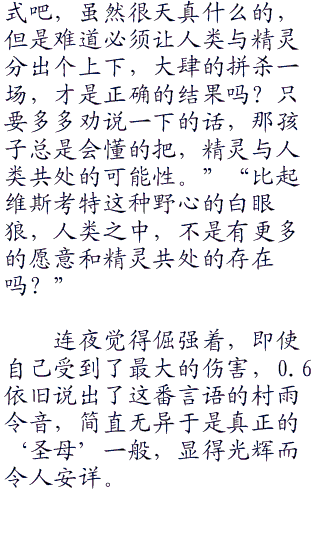 式吧，虽然很天真什么的，
但是难道必须让人类与精灵
分出个上下，大肆的拼杀一
场，才是正确的结果吗？只
要多多劝说一下的话，那孩
子总是会懂的把，精灵与人
类共处的可能性。”“比起
维斯考特这种野心的白眼
狼，人类之中，不是有更多
的愿意和精灵共处的存在
吗？”
连夜觉得倔强着，即使
自己受到了最大的伤害，0.6
依旧说出了这番言语的村雨
令音，简直无异于是真正的
‘圣母’一般，显得光辉而
令人安详。